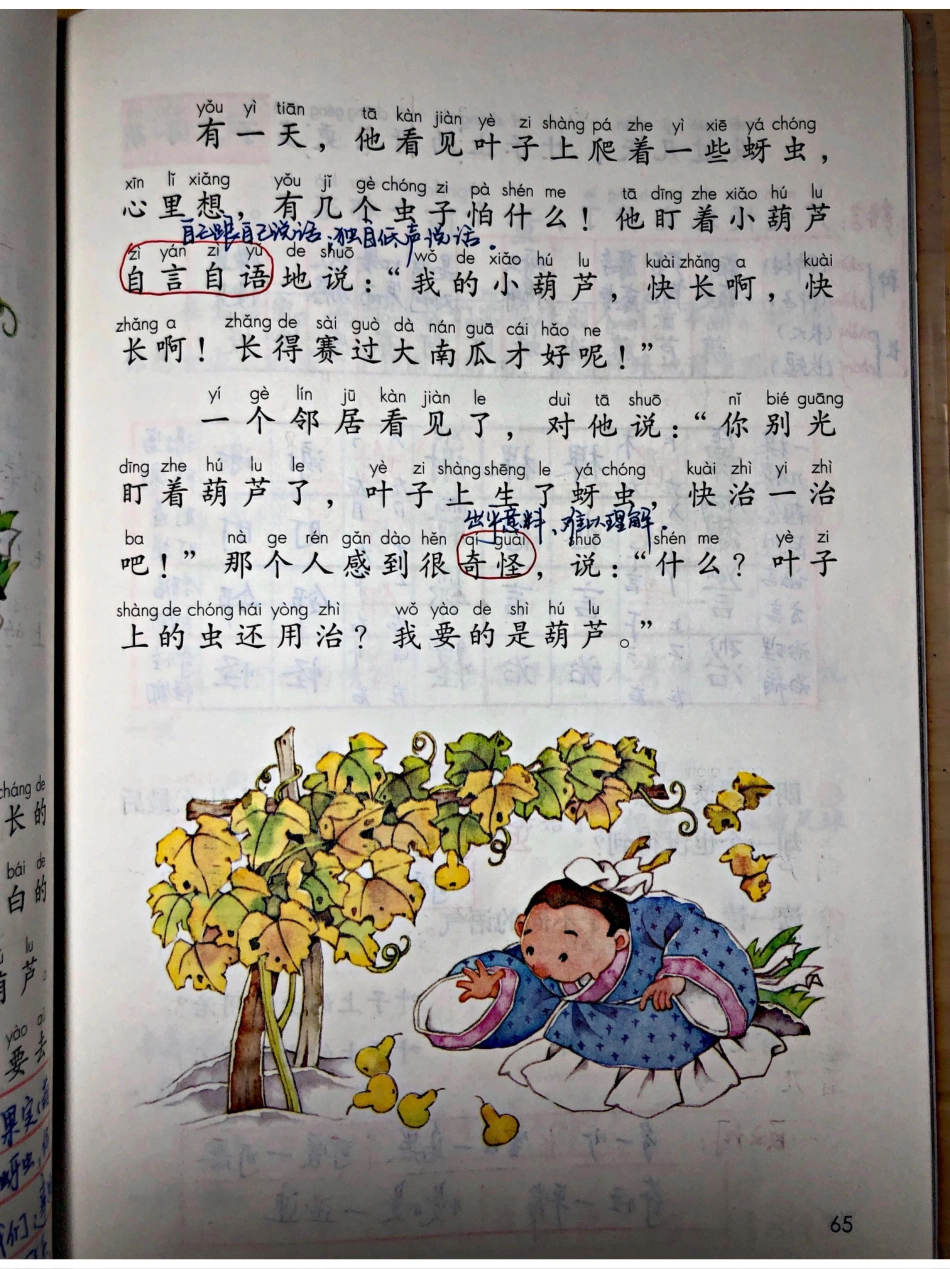 yǒu yì tiān tā kàn jiàn yè zi shàng pá zhe yì xiē yá chóng
有一天，他看见叶子上爬着一些蚜虫，
xīn lǐ xiǎng yǒu jǐ gè chóng zi pà shén me tā dīng zhe xiǎo hú lu
心里想，有几个虫子怕什么！他盯着小葫芦
自己跟自己说话；独自低声说话。
zì yán zì yǔ de shuō wǒ de xiǎo hú lu kuài zhǎng a kuài
自言自语地说：“我的小葫芦，快长啊，快
zhǎng a zhǎng de sài guò dà nán guā cái hǎo ne
长啊！长得赛过大南瓜才好呢！”
yí gè lín jū kàn jiàn le duì tā shuō nǐ bié guāng
一个邻居看见了，对他说：“你别光
dīng zhe hú lu le yè zi shàng shēng le yá chóng kuài zhì yi zhì
盯着葫芦了，叶子上生了蚜虫，快治一治
出乎意料，难以理解。
ba nà ge rén gǎn dào hěn qí guài shuō shén me yè zi
吧！”那个人感到很奇怪，说：“什么？叶子
shàng de chóng hái yòng zhì wǒ yào de shì hú lu
上的虫还用治？我要的是葫芦。”
cháng de
长的
bái de
白的
lu
芦。
yào
要去
果实
蚜虫，
们
65